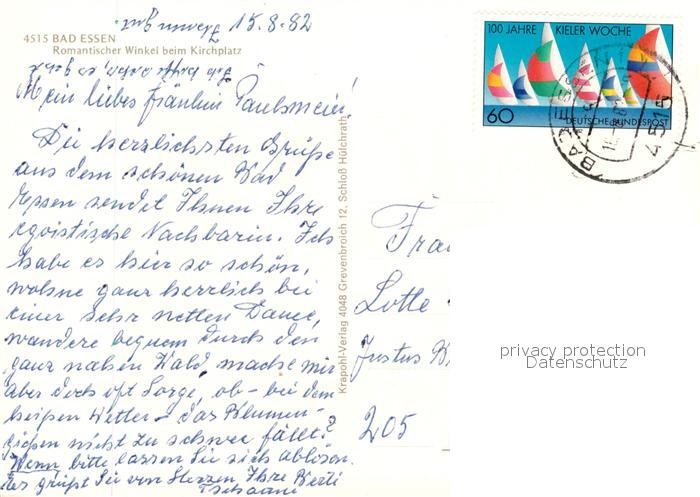 15.8.82
4515 BAD ESSEN
Romantischer Winkel beim Kirchplatz
Mein liebes Fräulein Paulsmeier!
Die herzlichsten Grüße
aus dem schönen Bad
Essen sendet Ihnen Ihre
egoistische Nachbarin. Ich
habe es hier so schön,
wohne ganz herrlich bei
einer sehr netten Dame,
wandere bequem durch den
ganz nahen Wald, mache mir
aber doch oft Sorge, ob - bei dem
heißen Wetter - das Blumen-
gießen nicht zu schwer fällt?
Wenn bitte lassen Sie sich ablösen.
Es grüßt Sie von Herzen Ihre Berti
Krapohl-Verlag 4048 Grevenbroich 12, Schloß Hülchrath
100 JAHRE KIELER WOCHE
60 DEUTSCHE BUNDESPOST
BAD ESSEN
4515
Frau
Lotte
Justus
205
privacy protection
Datenschutz